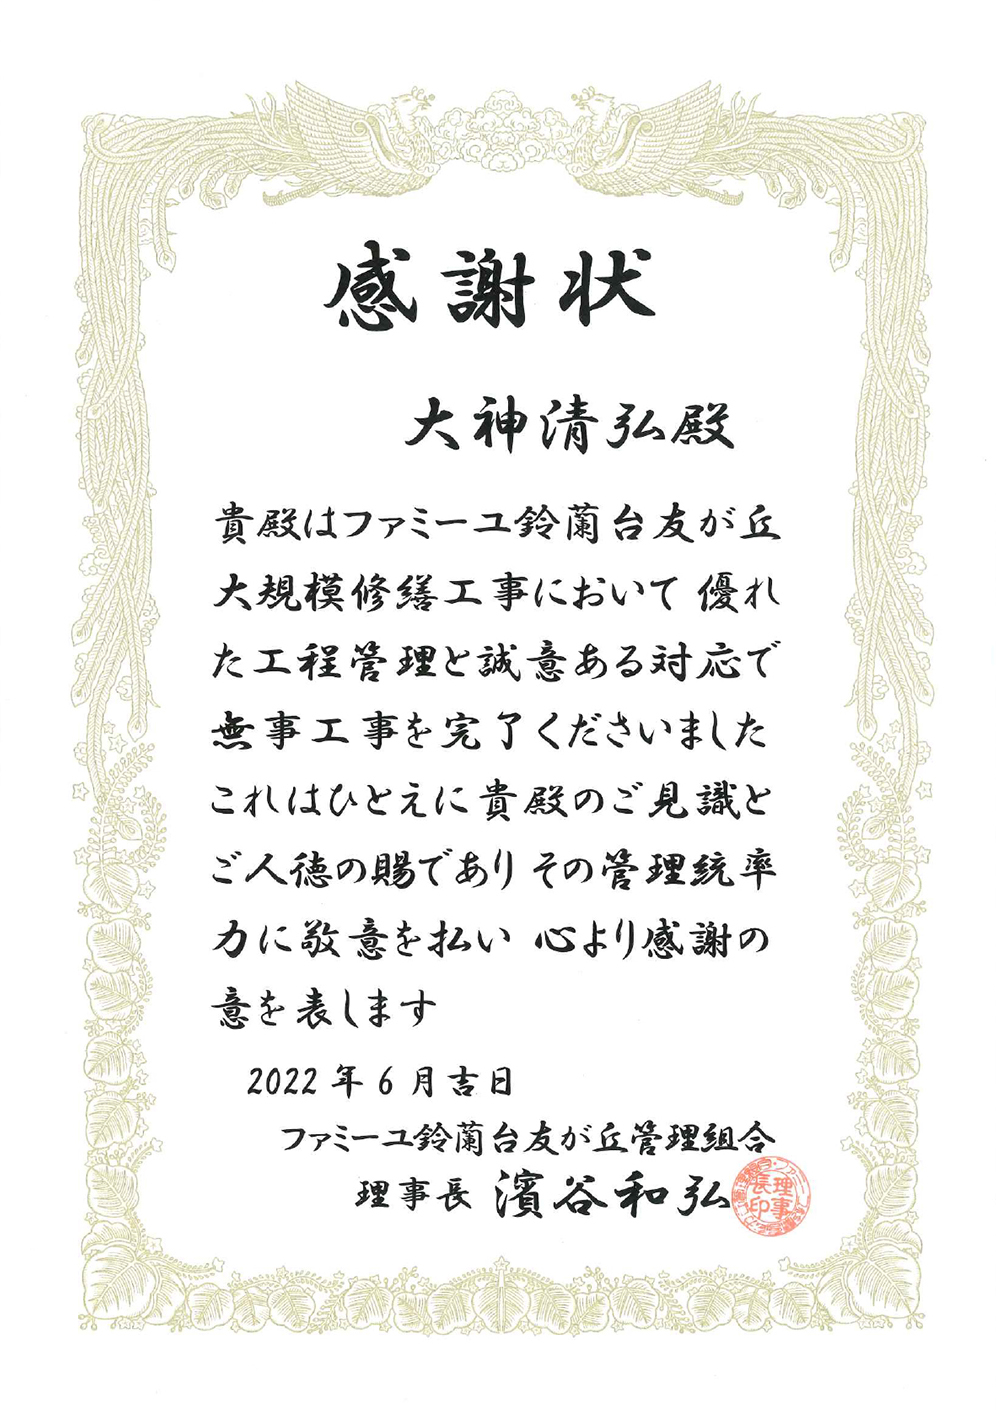 感謝状
大神清弘殿
貴殿はファミーユ鈴蘭台友が丘
大規模修繕工事において 優れ
た工程管理と誠意ある対応で
無事工事を完了くださいました
これはひとえに貴殿のご見識と
ご人徳の賜であり その管理統率
力に敬意を払い 心より感謝の
意を表します
2022年6月吉日
ファミーユ鈴蘭台友が丘管理組合
理事長 濱谷和弘
理事
長印